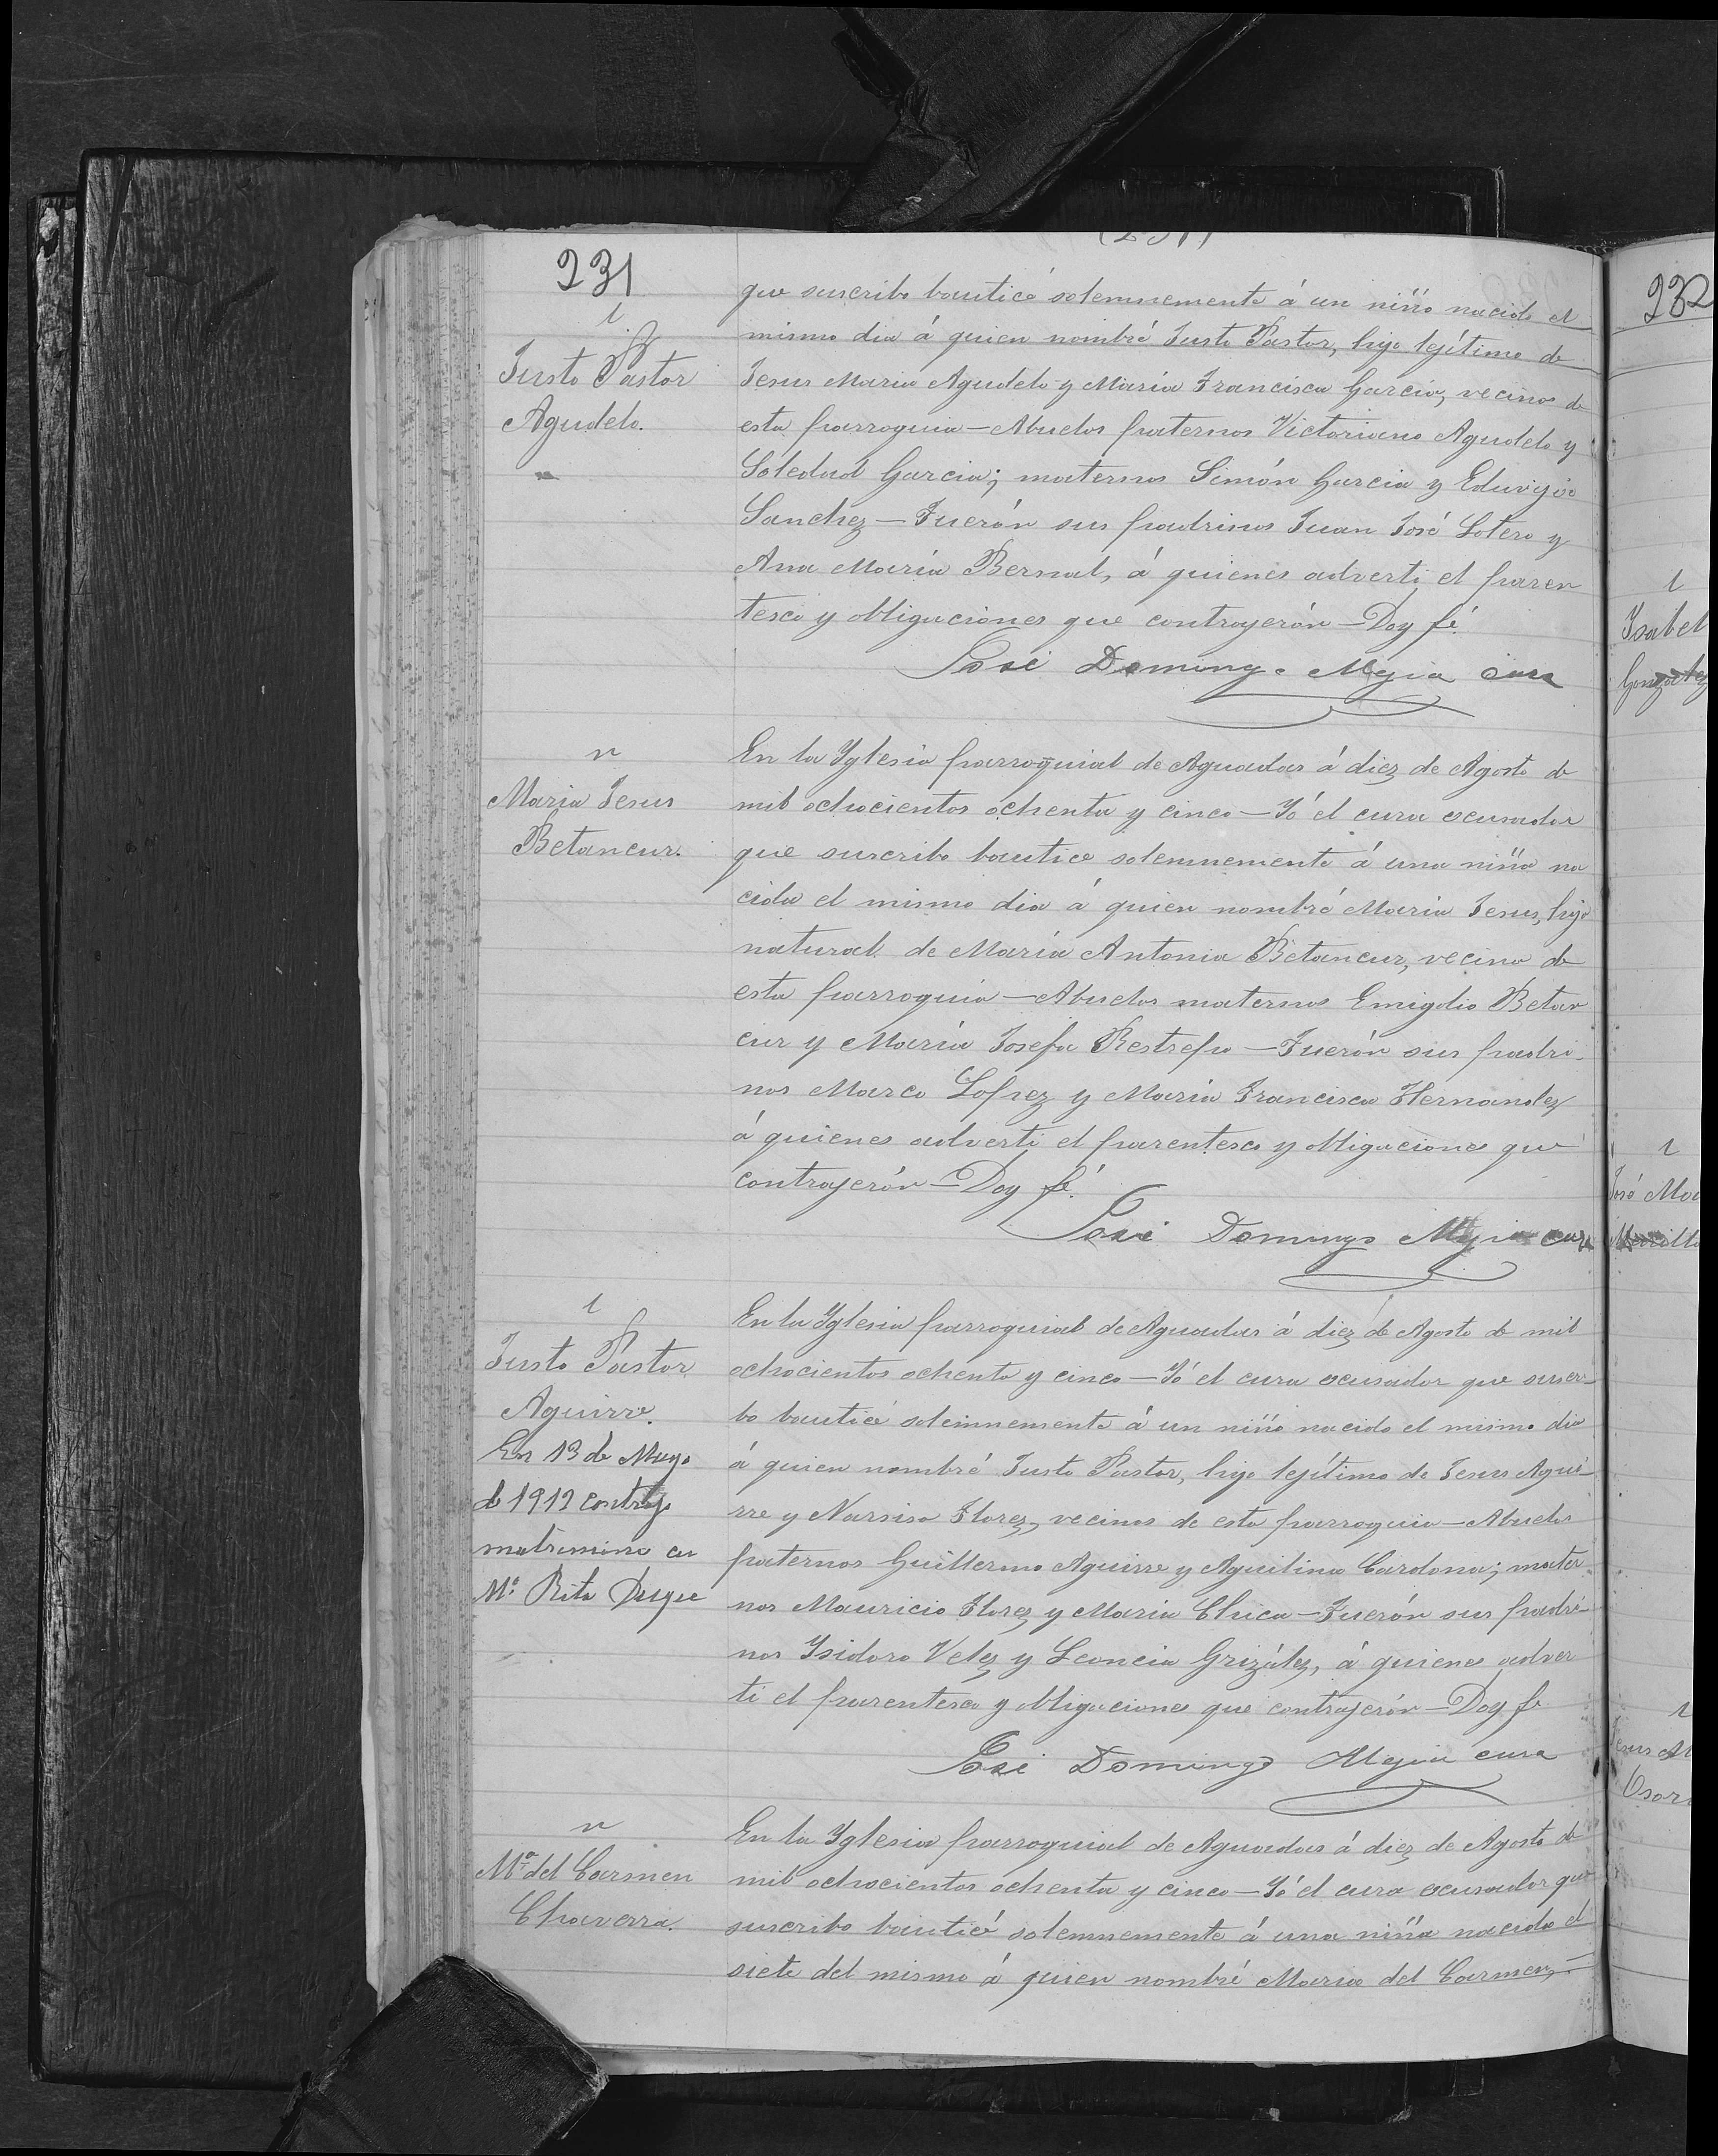 231
l
Justo Pastor
Agudelo.
que suscribo bauticé solemnemente á un niño nacido el
mismo dia á quien nombré Justo Pastor, hijo lejítimo de
Jesus Maria Agudelo y María Francisca Garcia, vecinos de
esta parroquia—Abuelos paternos Victoriano Agudelo y
Soledad Garcia; maternos Simón Garcia y Eduvigis
Sanchez—Fuerón sus padrinos Juan José Botero y
Ana María Bernal, á quienes advertí el paren
tesco y obligaciones que contrajerón—Doy fé.
José Domingo Mejia cura
n
Maria Jesus
Betancur.
En la Yglesia parroquial de Aguadas á diez de Agosto de
mil ochocientos ochenta y cinco—Yó el cura escusador
que suscribo bautice solemnemente á una niña na
cida el mismo dia á quien nombré María Jesus, hija
natural de María Antonia Betancur, vecina de
esta parroquia—Abuelos maternos Emigdio Betan
cur y María Josefa Restrepo—Fuerón sus padri-
nos Marco Lopez y María Francisca Hernandez
á quienes advertí el parentesco y obligaciones que
contrajerón—Doy fé.
José Domingo Mejia cura
l
Justo Pastor
Aguirre.
En 13 de Mayo
d 1912 contrajo
matrimonio con
Mª Rita Duque
En la Yglesia parroquial de Aguadas á diez de Agosto de mil
ochocientos ochenta y cinco—Yó el cura escusador que suscri-
bo bauticé solemnemente á un niño nacido el mismo dia
á quien nombré Justo Pastor, hijo lejítimo de Jesus Agui-
rre y Narsisa Florez, vecinos de esta parroquia—Abuelos
paternos Guillermo Aguirre y Aquilina Cardona; mater-
nos Mauricio Florez y Maria Chica—Fuerón sus padri-
nos Ysidoro Velez y Leoncia Grizález, á quienes adver
tí el parentesco y obligaciones que contrajerón—Doy fe
José Domingo Mejia cura
n
Mª del Carmen
Chaverra.
En la Yglesia parroquial de Aguadas á diez de Agosto de
mil ochocientos ochenta y cinco—Yó el cura escusador que
suscribo bauticé solemnemente á una niña nacida el
siete del mismo á quien nombré Maria del Carmen,
232
l
Ysabel
Gonzalez
l
José Ma
l
Osor